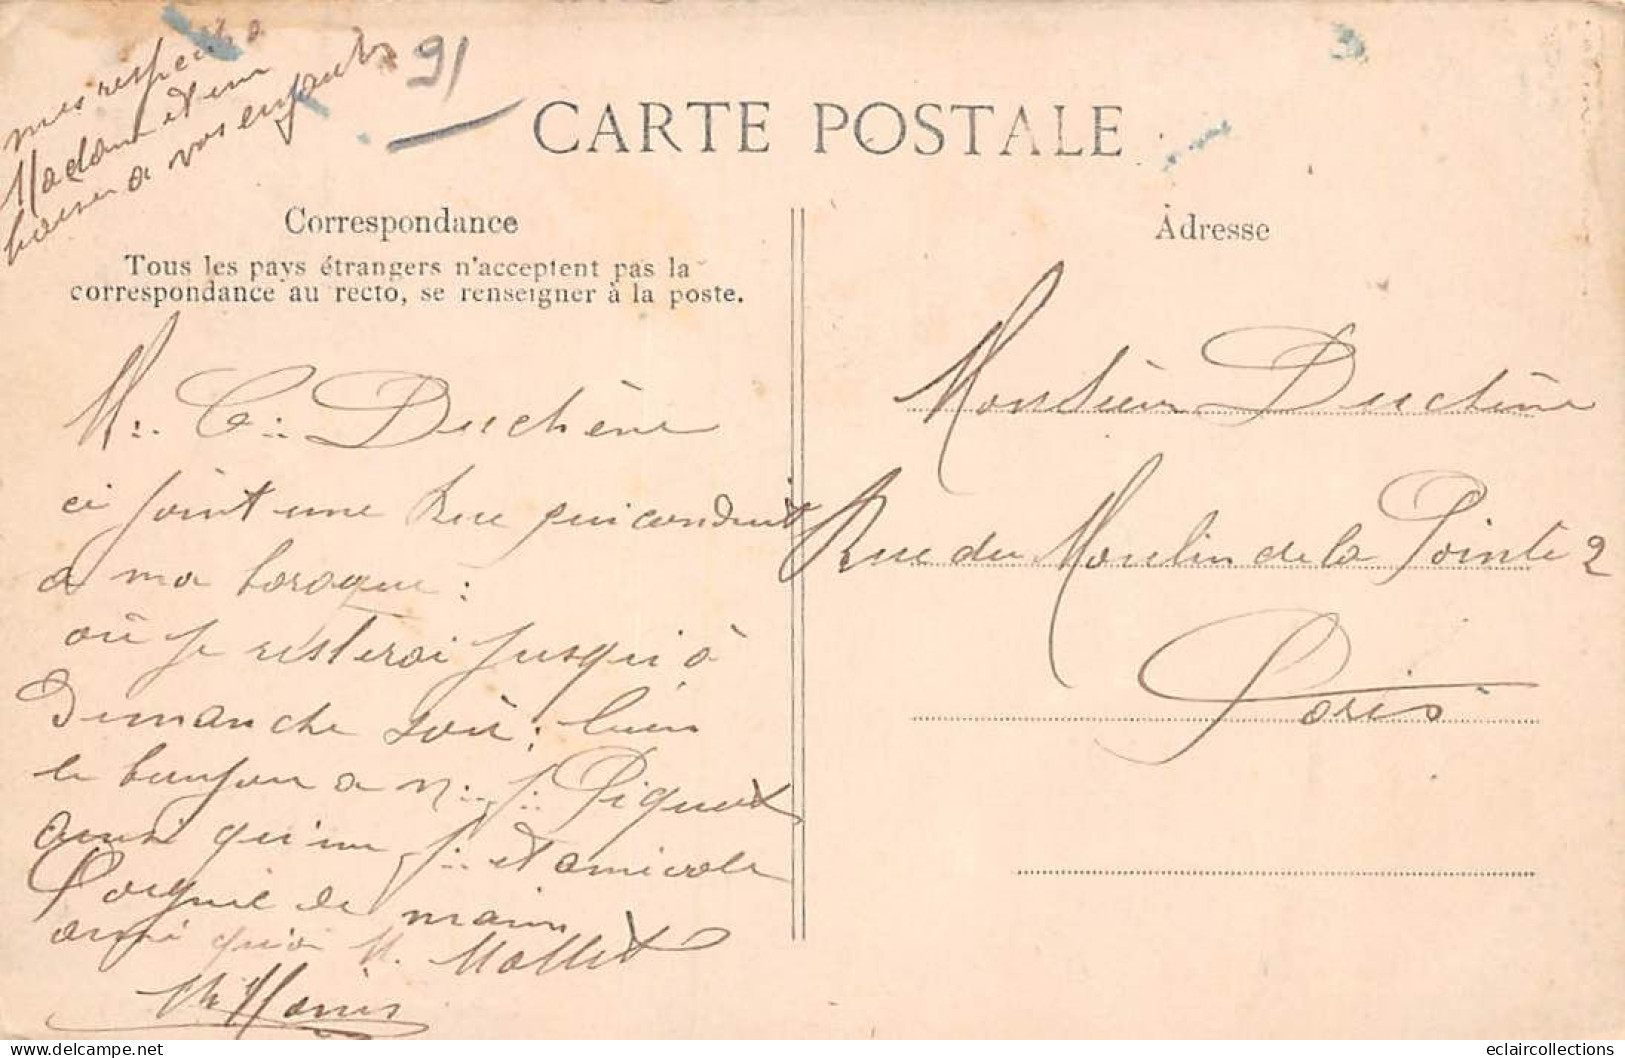 mes respects a
Madame et un
baiser a vos enfants
91
CARTE POSTALE
Correspondance
Tous les pays étrangers n'acceptent pas la
correspondance au recto, se renseigner à la poste.
M. C. Duchène
ci joint une Rue qui conduit
a ma baraque :
où je resterai jusqu'à
Dimanche soir ; bien
le bonjour a M. J. Piquet
ainsi qu'un et amicale
Poignée de main
ainsi qu'à M. Mollet
Adresse
Monsieur Duchène
Rue du Moulin de la Pointe 2
Paris
eclaircollections
www.delcampe.net